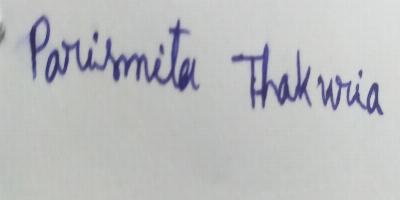 Parismita Thakuria